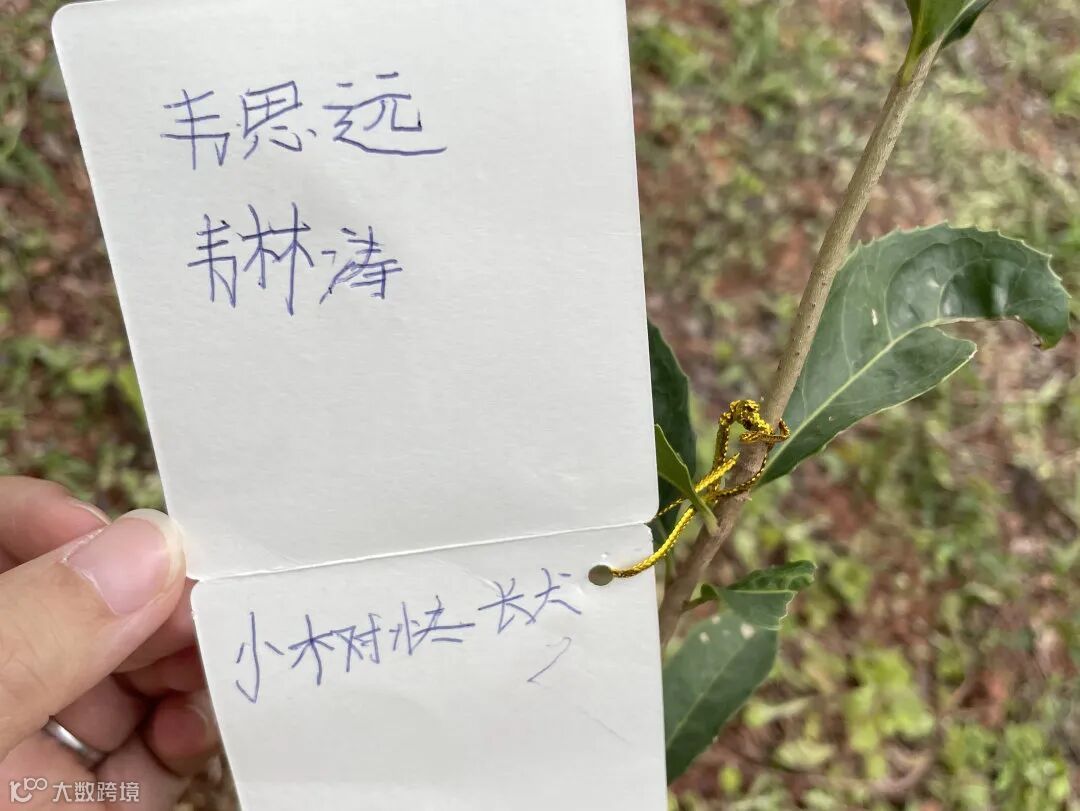 韦思远
韦林涛
小树快快长大
大数跨境